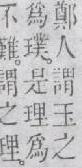 鄭人謂玉之
爲璞。是理爲
不難。謂之理。